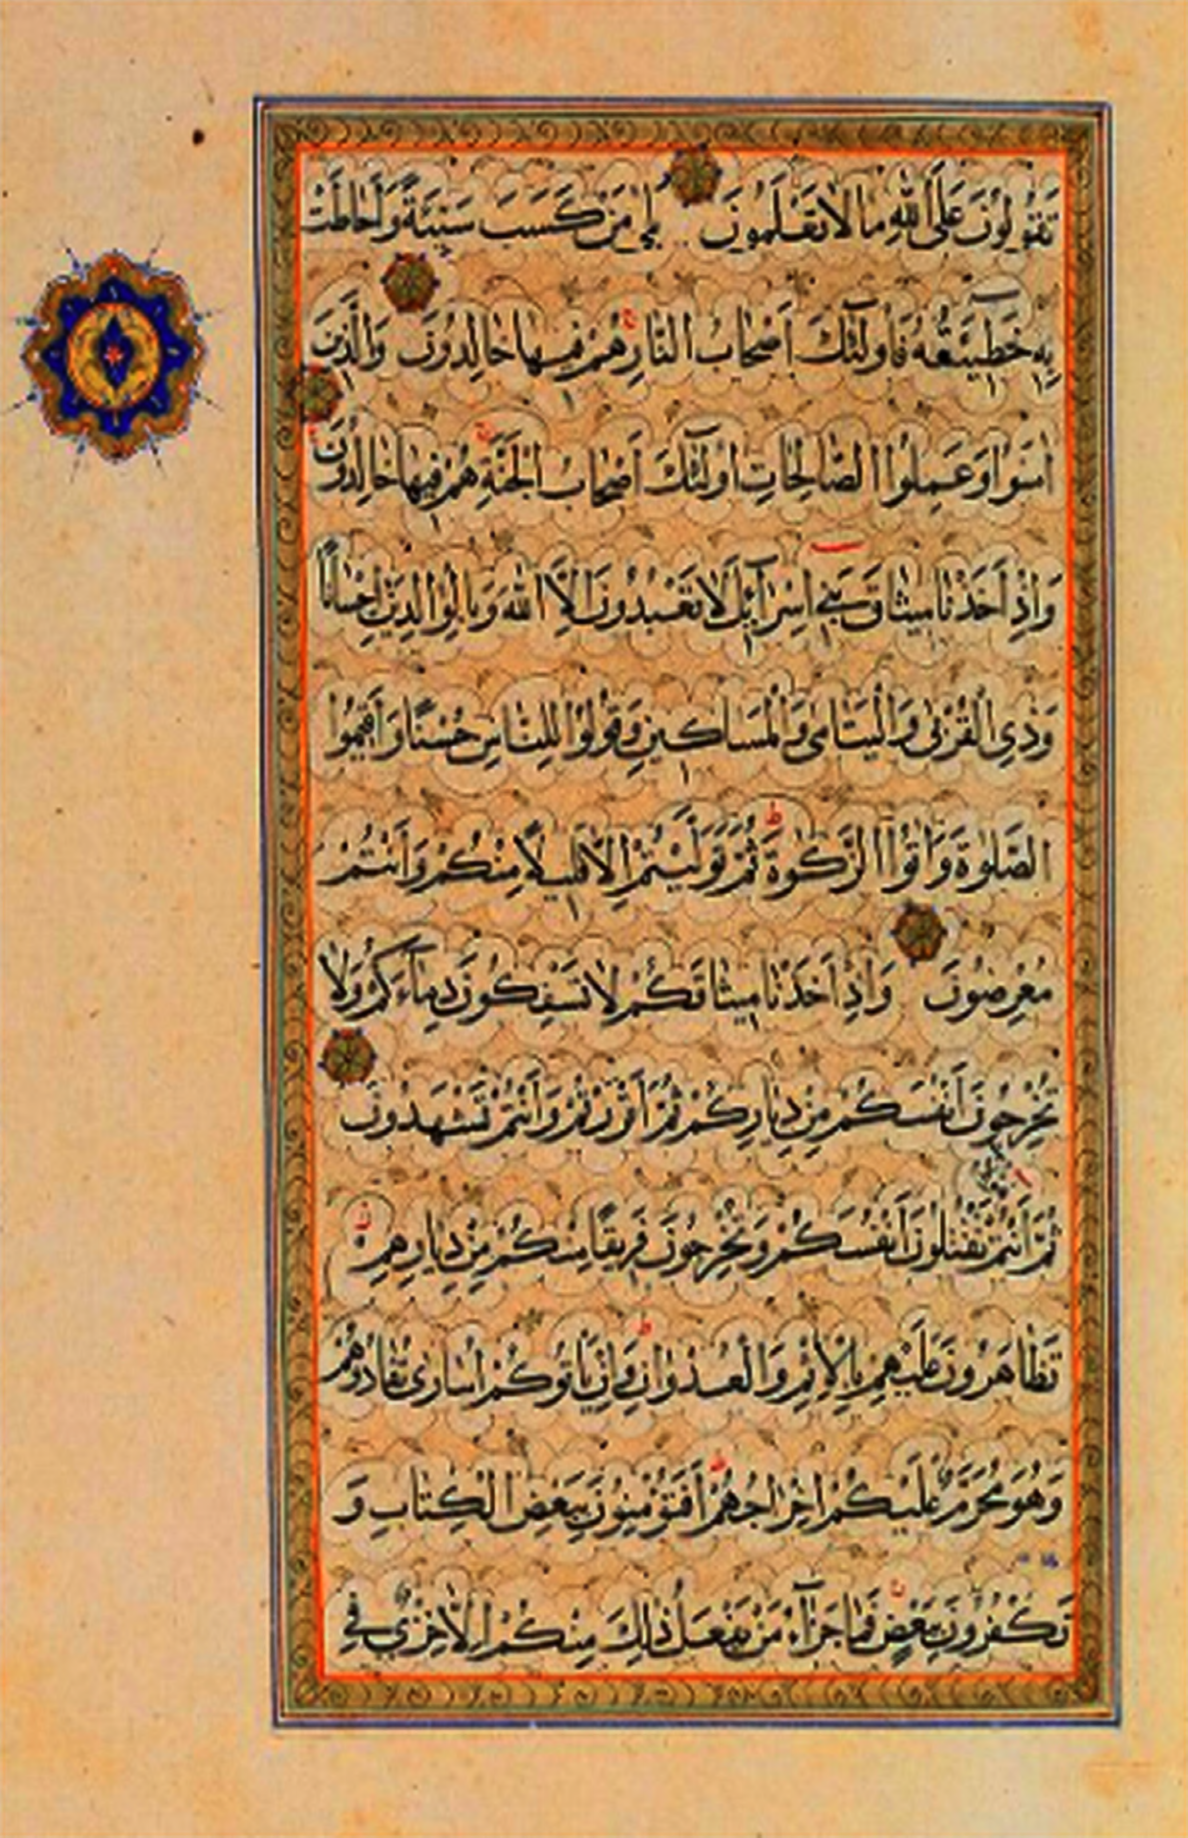 تَقُولُونَ عَلَى اللّٰهِ مَا لَا تَعْلَمُونَ بَلٰى مَنْ كَسَبَ سَيِّئَةً وَاَحَاطَتْ
بِهِ خَطِيـَٔتُهُ فَاُولٰئِكَ اَصْحَابُ النَّارِ هُمْ فِيهَا خَالِدُونَ وَالَّذِينَ
اٰمَنُوا وَعَمِلُوا الصَّالِحَاتِ اُولٰئِكَ اَصْحَابُ الْجَنَّةِ هُمْ فِيهَا خَالِدُونَ
وَاِذْ اَخَذْنَا مِيثَاقَ بَنِي اِسْرَآئِيلَ لَا تَعْبُدُونَ اِلَّا اللّٰهَ وَبِالْوَالِدَيْنِ اِحْسَانًا
وَذِي الْقُرْبٰى وَالْيَتَامٰى وَالْمَسَاكِينِ وَقُولُوا لِلنَّاسِ حُسْنًا وَاَقِيمُوا
الصَّلٰوةَ وَاٰتُوا الزَّكٰوةَ ثُمَّ تَوَلَّيْتُمْ اِلَّا قَلِيلًا مِنْكُمْ وَاَنْتُمْ
مُعْرِضُونَ وَاِذْ اَخَذْنَا مِيثَاقَكُمْ لَا تَسْفِكُونَ دِمَآءَكُمْ وَلَا
تُخْرِجُونَ اَنْفُسَكُمْ مِنْ دِيَارِكُمْ ثُمَّ اَقْرَرْتُمْ وَاَنْتُمْ تَشْهَدُونَ
ثُمَّ اَنْتُمْ تَقْتُلُونَ اَنْفُسَكُمْ وَتُخْرِجُونَ فَرِيقًا مِنْكُمْ مِنْ دِيَارِهِمْ
تَظَاهَرُونَ عَلَيْهِمْ بِالْاِثْمِ وَالْعُدْوَانِ وَاِنْ يَأْتُوكُمْ اُسَارٰى تُفَادُوهُمْ
وَهُوَ مُحَرَّمٌ عَلَيْكُمْ اِخْرَاجُهُمْ اَفَتُؤْمِنُونَ بِبَعْضِ الْكِتَابِ وَ
تَكْفُرُونَ بِبَعْضٍ فَمَا جَزَآءُ مَنْ يَفْعَلُ ذٰلِكَ مِنْكُمْ اِلَّا خِزْيٌ فِي